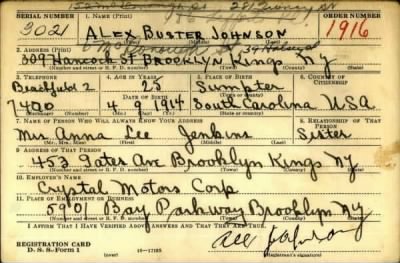 SERIAL NUMBER 1. NAME (Print) ORDER NUMBER
3021 ALEX BUSTER JOHNSON 1916
(First) (Middle) (Last)
2. ADDRESS (Print)
309 Hancock St BROOKLYN Kings Ny
(Number and street or R. F. D. number) (Town) (County) (State)
3. TELEPHONE 4. AGE IN YEARS 5. PLACE OF BIRTH 6. COUNTRY OF CITIZENSHIP
25 Sumpter
DATE OF BIRTH (Town or county)
7400 4 9 1914 South Carolina U.S.A.
(Exchange) (Number) (Mo.) (Day) (Yr.) (State or country)
7. NAME OF PERSON WHO WILL ALWAYS KNOW YOUR ADDRESS 8. RELATIONSHIP OF THAT PERSON
Mrs Anna Lee Jenkins Sister
(Mr., Mrs., Miss) (First) (Middle) (Last)
9. ADDRESS OF THAT PERSON
453 Gates Ave Brooklyn Kings Ny
(Number and street or R. F. D. number) (Town) (County) (State)
10. EMPLOYER'S NAME
Crystal Motors Corp
11. PLACE OF EMPLOYMENT OR BUSINESS
5901 Bay Parkway Brooklyn Ny
(Number and street or R. F. D. number) (Town) (County) (State)
I AFFIRM THAT I HAVE VERIFIED ABOVE ANSWERS AND THAT THEY ARE TRUE.
REGISTRATION CARD
D. S. S. Form 1 (over) 16—17105 (Registrant's signature)